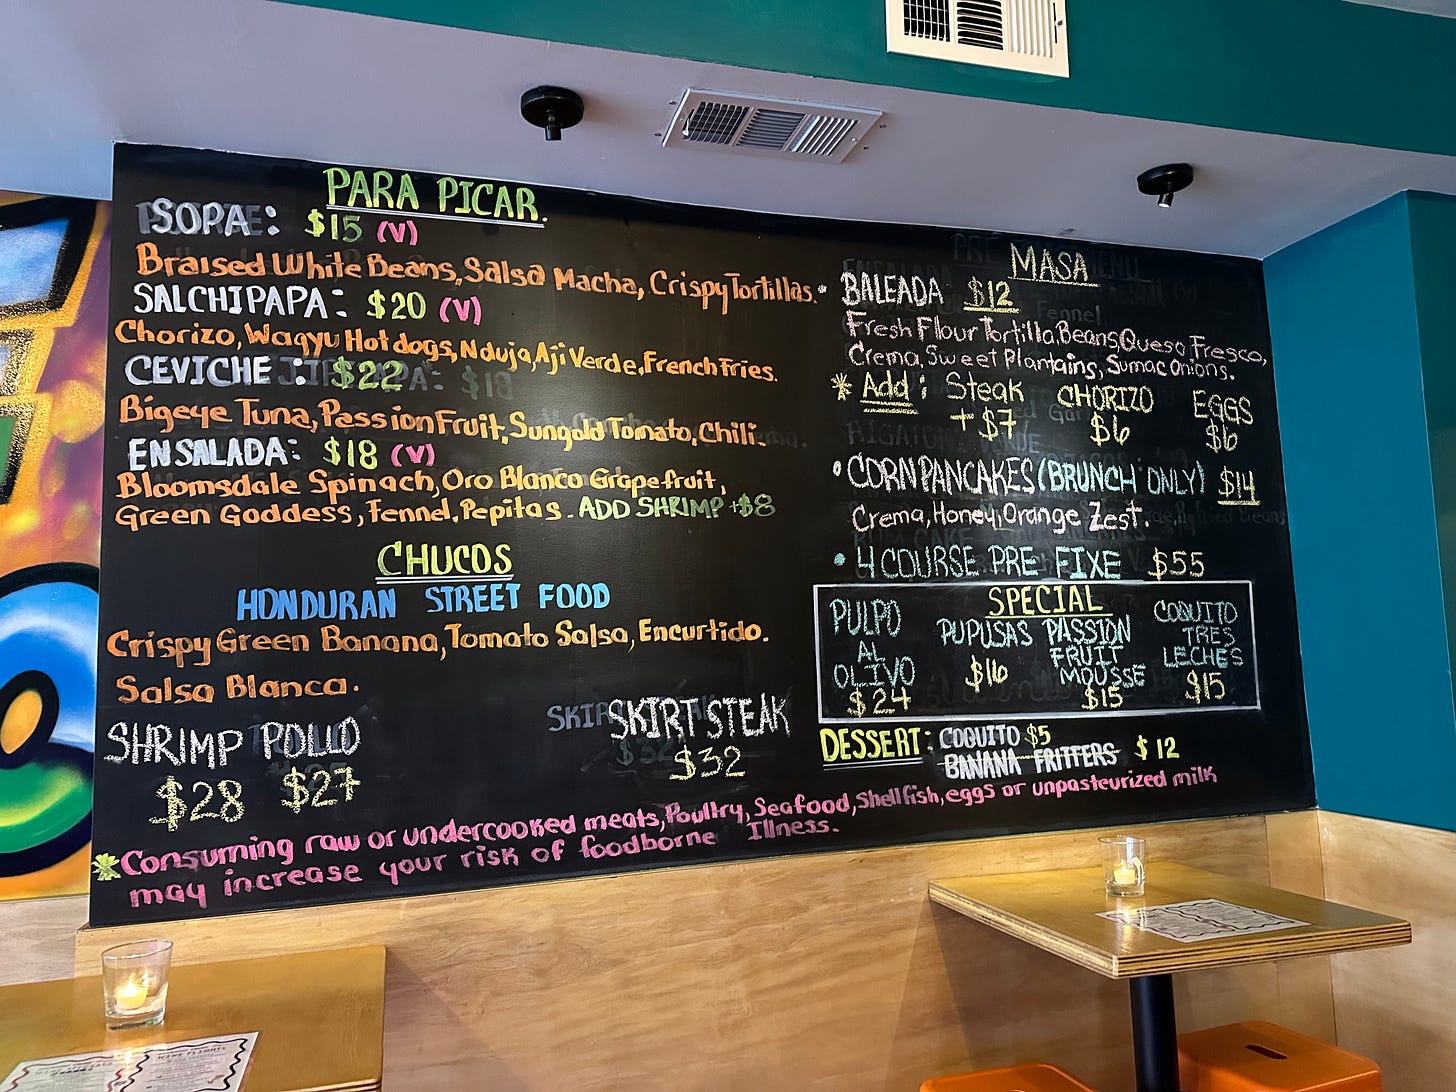 PARA PICAR.
SOPA: $15 (V)
Braised White Beans, Salsa Macha, Crispy Tortillas.
SALCHIPAPA: $20 (V)
Chorizo, Wagyu Hot dogs, Nduja, Aji Verde, French Fries.
CEVICHE: $22
Bigeye Tuna, Passion Fruit, Sungold Tomato, Chili.
ENSALADA: $18 (V)
Bloomsdale Spinach, Oro Blanco Grapefruit,
Green Goddess, Fennel, Pepitas. ADD SHRIMP +$8
CHUCOS
HONDURAN STREET FOOD
Crispy Green Banana, Tomato Salsa, Encurtido.
Salsa Blanca.
SHRIMP POLLO SKIRT STEAK
$28 $27 $32
MASA
• BALEADA $12
Fresh Flour Tortilla, Beans, Queso Fresco,
Crema, Sweet Plantains, Sumac Onions.
* Add: Steak CHORIZO EGGS
+$7 $6 $6
• CORN PANCAKES (BRUNCH ONLY) $14
Crema, Honey, Orange Zest.
• 4 COURSE PRE FIXE $55
SPECIAL
PULPO
AL
OLIVO
$24
PUPUSAS
$16
PASSION
FRUIT
MOUSSE
$15
COQUITO
TRES
LECHES
$15
DESSERT: COQUITO $5
BANANA FRITTERS $12
* Consuming raw or undercooked meats, Poultry, Seafood, Shellfish, eggs or unpasteurized milk
may increase your risk of foodborne Illness.
WINE FLIGHTS